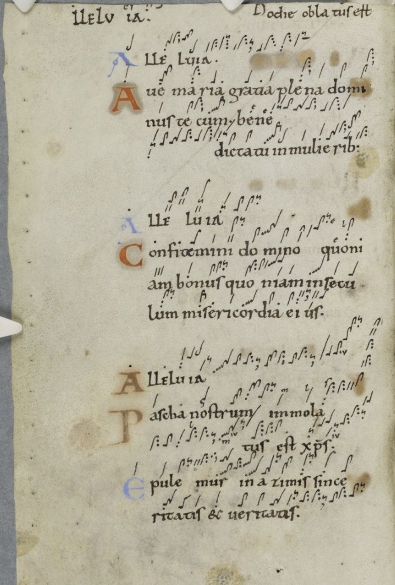 llelu ia. Doche obla tus est
Alle luia.
Aue ma ria gratia ple na domi
nus te cum bene
dicta tu in mulie rib:
Alle lu ia
Confitemini do mino quoni
am bonus quo niam in secu
lum misericordia ei us.
Alleluia
Pascha nostrum immola
tus est xps.
Epule mur in a zimis since
ritatis & ueritatis.